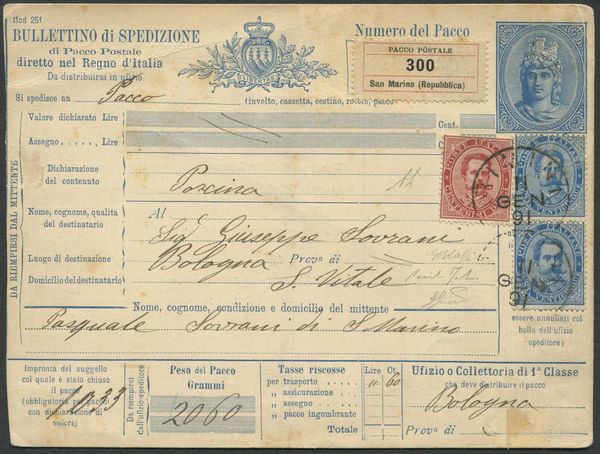 Mod 251
BULLETTINO di SPEDIZIONE
di Pacco Postale
diretto nel Regno d'Italia
Da distribuirsi in ufizio
LIBERTAS
Numero del Pacco
PACCO POSTALE
300
San Marino (Repubblica)
Si spedisce un Pacco (involto, cassetta, cestino, rotolo, pacco
Valore dichiarato Lire Cent.
Assegno, Lire
DA RIEMPIRSI DAL MITTENTE
Dichiarazione del contenuto
Nome, cognome, qualità del destinatario
Al
Sig. Giuseppe Sovrani
Luogo di destinazione
Bologna Prova di
Domicilio del destinatario
S. Vitale
Nome, cognome, condizione e domicilio del mittente
Pasquale Sovrani di S. Marino
POSTE ITALIANE
GEN
91
11
GEN
91
essere annullati col
bollo dell'ufizio
speditore
Impronta del suggello
col quale è stato chiuso
il pacco
(obbligatoria pei pacchi
con dichiarazione di
valore)
1033
Da riempirsi
dall'ufizio speditore
Peso del Pacco
Grammi
2060
Tasse riscosse Lire Ct.
per trasporto " 60
" assicurazione
" assegno
" pacco ingombrante
Totale
Ufizio o Collettoria di 1ª Classe
che deve distribuire il pacco
Bologna
Prova di